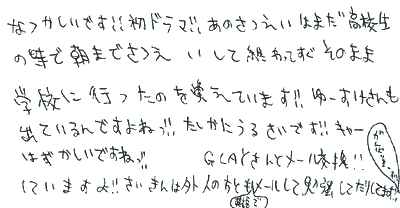 なつかしいです!!初ドラマ!!あのさつえいはまだ高校生
の時で朝までさつえいして終わってすぐそのまま
学校に行ったのを覚えています!!ゆーすけさんも
出ているんですよねっ!!たしかにうるさいです!!キャー
はずかしいですねっ!! GLAYさんとメール交換!!
していますよ!!さいきんは外人のお友だちとメールして勉強してたりしてます!!
(英語で)